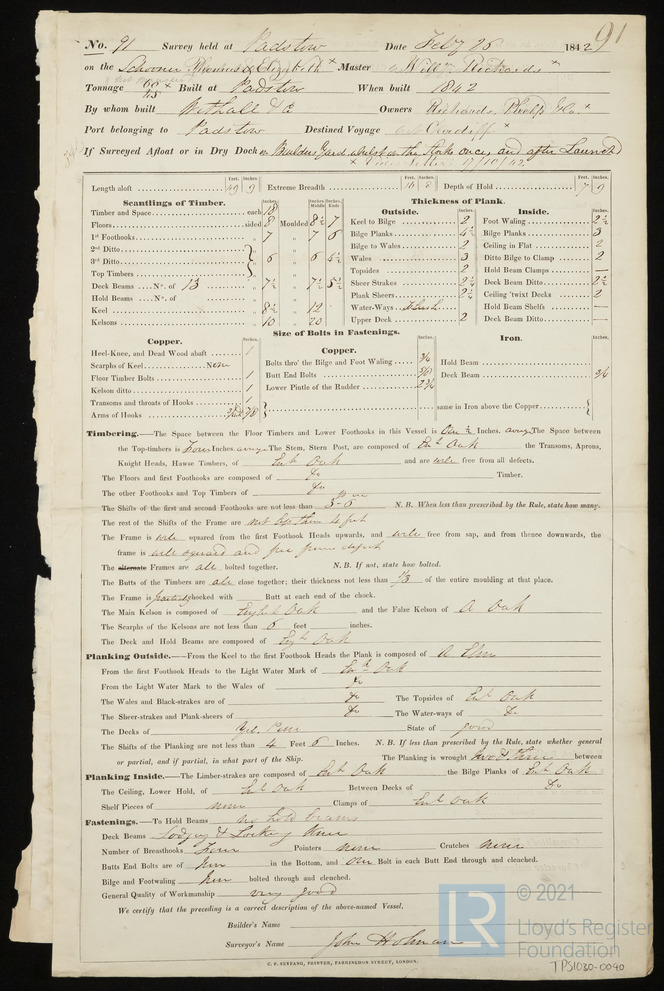 No. 91 Survey held at Padstow Date Feby 26 1842 91
on the Schooner & Elizabeth Master Willm Richards
Tonnage 60 Built at Padstow When built 1842
By whom built Withall & Co Owners Richards, Phelps & Co.
Port belonging to Padstow Destined Voyage Cardiff
If Surveyed Afloat or in Dry Dock on Builders Yard whilst on the Stocks once, and after Launch'd
Feet. Inches. Feet. Inches. Feet. Inches.
Length aloft 49 9 Extreme Breadth 16 8 Depth of Hold 7 9
Scantlings of Timber. Inches. Inches. Middle Inches. Ends
Timber and Space each 18
Floors sided 8 Moulded 8½ 7
1st Foothooks „ 7 „ 7 6
2nd Ditto
3rd Ditto „ 6 „ 6 4½
Top Timbers
Deck Beams No. of 13 „ 7½ „ 7½ 5½
Hold Beams No. of „ „
Keel „ 8½ „ 12
Kelsons „ 10 „ 20
Thickness of Plank.
Outside. Inches. Inside. Inches.
Keel to Bilge 2 Foot Waling 2½
Bilge Planks 4½ Bilge Planks 3
Bilge to Wales 2 Ceiling in Flat 2
Wales 3 Ditto Bilge to Clamp 2
Topsides 2 Hold Beam Clamps —
Sheer Strakes 2½ Deck Beam Ditto 2½
Plank Sheers 2½ Ceiling 'twixt Decks 2
Water-Ways Flush Hold Beam Shelfs —
Upper Deck 2 Deck Beam Ditto —
Size of Bolts in Fastenings.
Copper. Inches. Copper. Inches. Iron. Inches.
Heel-Knee, and Dead Wood abaft 1
Scarphs of Keel None
Floor Timber Bolts 1
Kelson ditto 1
Transoms and throats of Hooks 1
Arms of Hooks 3/4 & 7/8
Bolts thro' the Bilge and Foot Waling 3/4
Butt End Bolts 5/8
Lower Pintle of the Rudder 2¾
Hold Beam
Deck Beam 3/4
same in Iron above the Copper
Timbering.—The Space between the Floor Timbers and Lower Foothooks in this Vessel is One ½ Inches. averg. The Space between
the Top-timbers is Four Inches. averg. The Stem, Stern Post, are composed of Enh Oak the Transoms, Aprons,
Knight Heads, Hawse Timbers, of Enh Oak and are well free from all defects.
The Floors and first Foothooks are composed of Do Timber.
The other Foothooks and Top Timbers of Do
The Shifts of the first and second Foothooks are not less than 5-6 N. B. When less than prescribed by the Rule, state how many.
The rest of the Shifts of the Frame are not less than 4 feet
The Frame is well squared from the first Foothook Heads upwards, and well free from sap, and from thence downwards, the
frame is well squared and free from defects
The alternate Frames are all bolted together. N. B. If not, state how bolted.
The Butts of the Timbers are all close together; their thickness not less than 1/3 of the entire moulding at that place.
The Frame is partially chocked with Butt at each end of the chock.
The Main Kelson is composed of English Oak and the False Kelson of A Oak
The Scarphs of the Kelsons are not less than 6 feet inches.
The Deck and Hold Beams are composed of Engh Oak
Planking Outside.—From the Keel to the first Foothook Heads the Plank is composed of A Elm
From the first Foothook Heads to the Light Water Mark of Enh Oak
From the Light Water Mark to the Wales of Do
The Wales and Black-strakes are of Do The Topsides of Enh Oak
The Sheer-strakes and Plank-sheers of Do The Water-ways of Do
The Decks of Yel. Pine State of good
The Shifts of the Planking are not less than 4 Feet 6 Inches. N. B. If less than prescribed by the Rule, state whether general
or partial, and if partial, in what part of the Ship. The Planking is wrought two & three between
Planking Inside.—The Limber-strakes are composed of Enh Oak the Bilge Planks of Enh Oak
The Ceiling, Lower Hold, of Enh Oak Between Decks of Do
Shelf Pieces of none Clamps of Enh Oak
Fastenings.—To Hold Beams no hold beams
Deck Beams Lodging & Knees
Number of Breasthooks Four Pointers none Crutches none
Butts End Bolts are of in the Bottom, and One Bolt in each Butt End through and clenched.
Bilge and Footwaling bolted through and clenched.
General Quality of Workmanship very good
We certify that the preceding is a correct description of the above-named Vessel.
Builder's Name
Surveyor's Name John Holman
C. F. SEYFANG, PRINTER, FARRINGDON STREET, LONDON.
LR © 2021
Lloyd's Register
Foundation
TPS1030-0040